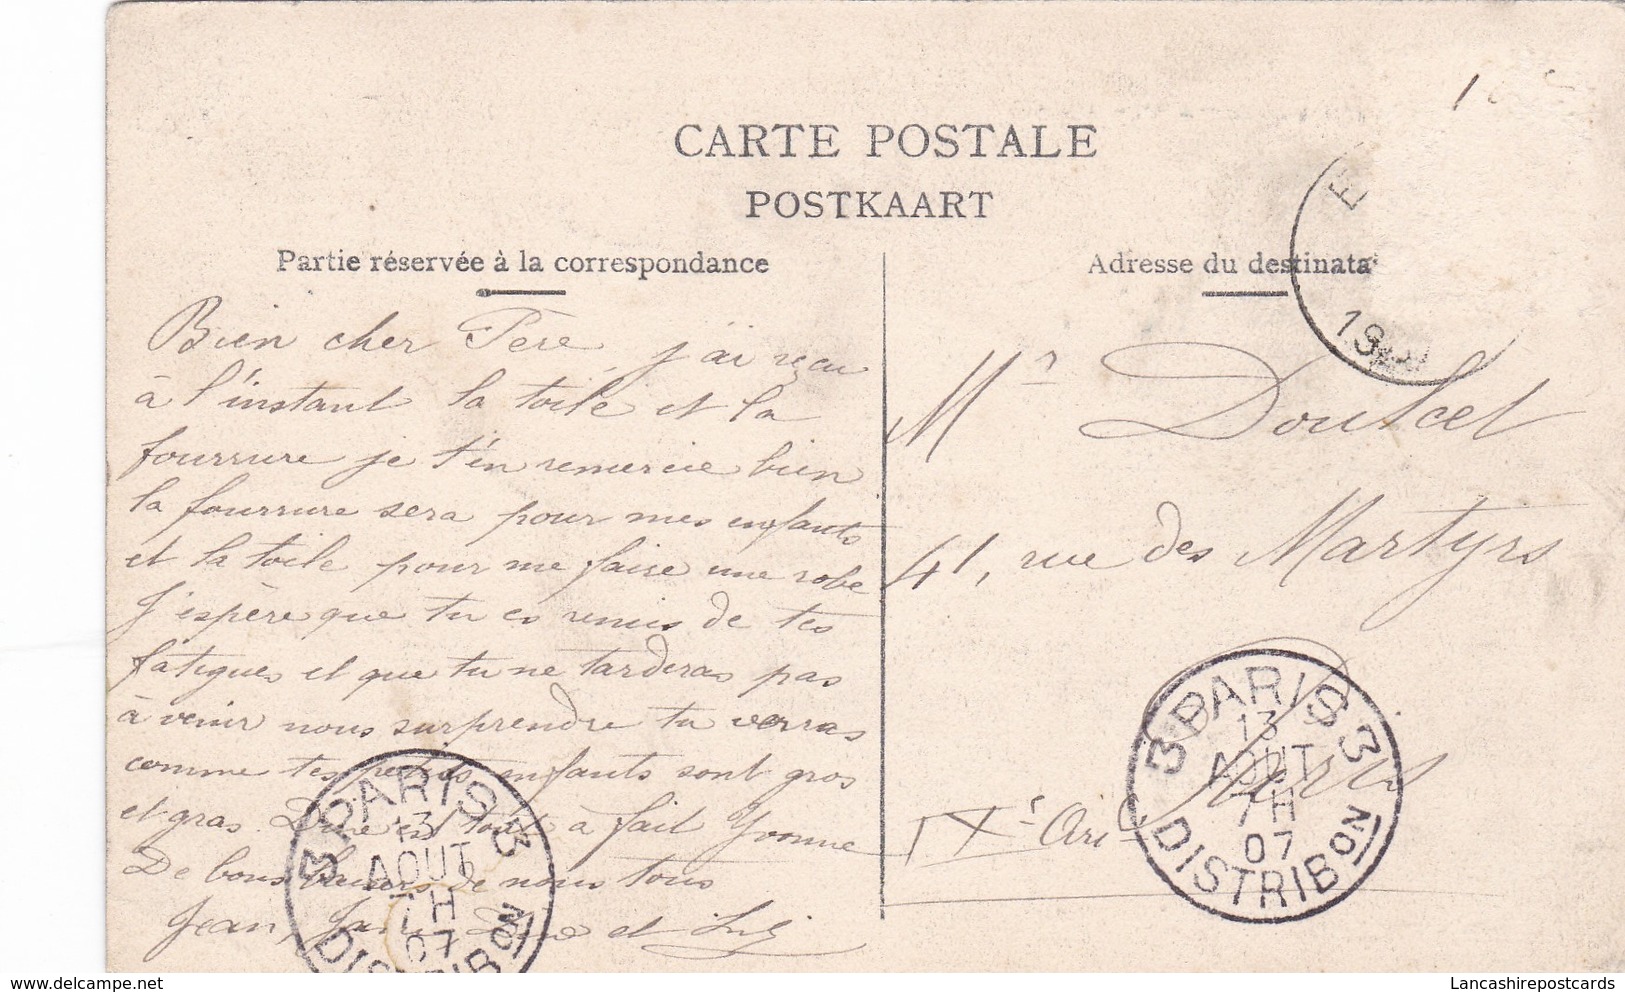 CARTE POSTALE
POSTKAART
Partie réservée à la correspondance
Adresse du destinata
Bien cher Père, j'ai reçu
à l'instant la toile et la
fourrure je t'en remercie bien
la fourrure sera pour mes enfants
et la toile pour me faire une robe
J'espère que tu es remis de tes
fatigues et que tu ne tarderas pas
à venir nous surprendre tu verras
comme tes petits enfants sont gros
et gras. est tout à fait Yvonne
De bons baisers de nous tous
Jean, et
Mr Doulcet
41, rue des Martyrs
Paris
E
19
3 PARIS 3
13
AOUT
7H
07
DISTRIBON
3 PARIS 3
13
AOUT
7H
07
DISTRIBON
Lancashirepostcards